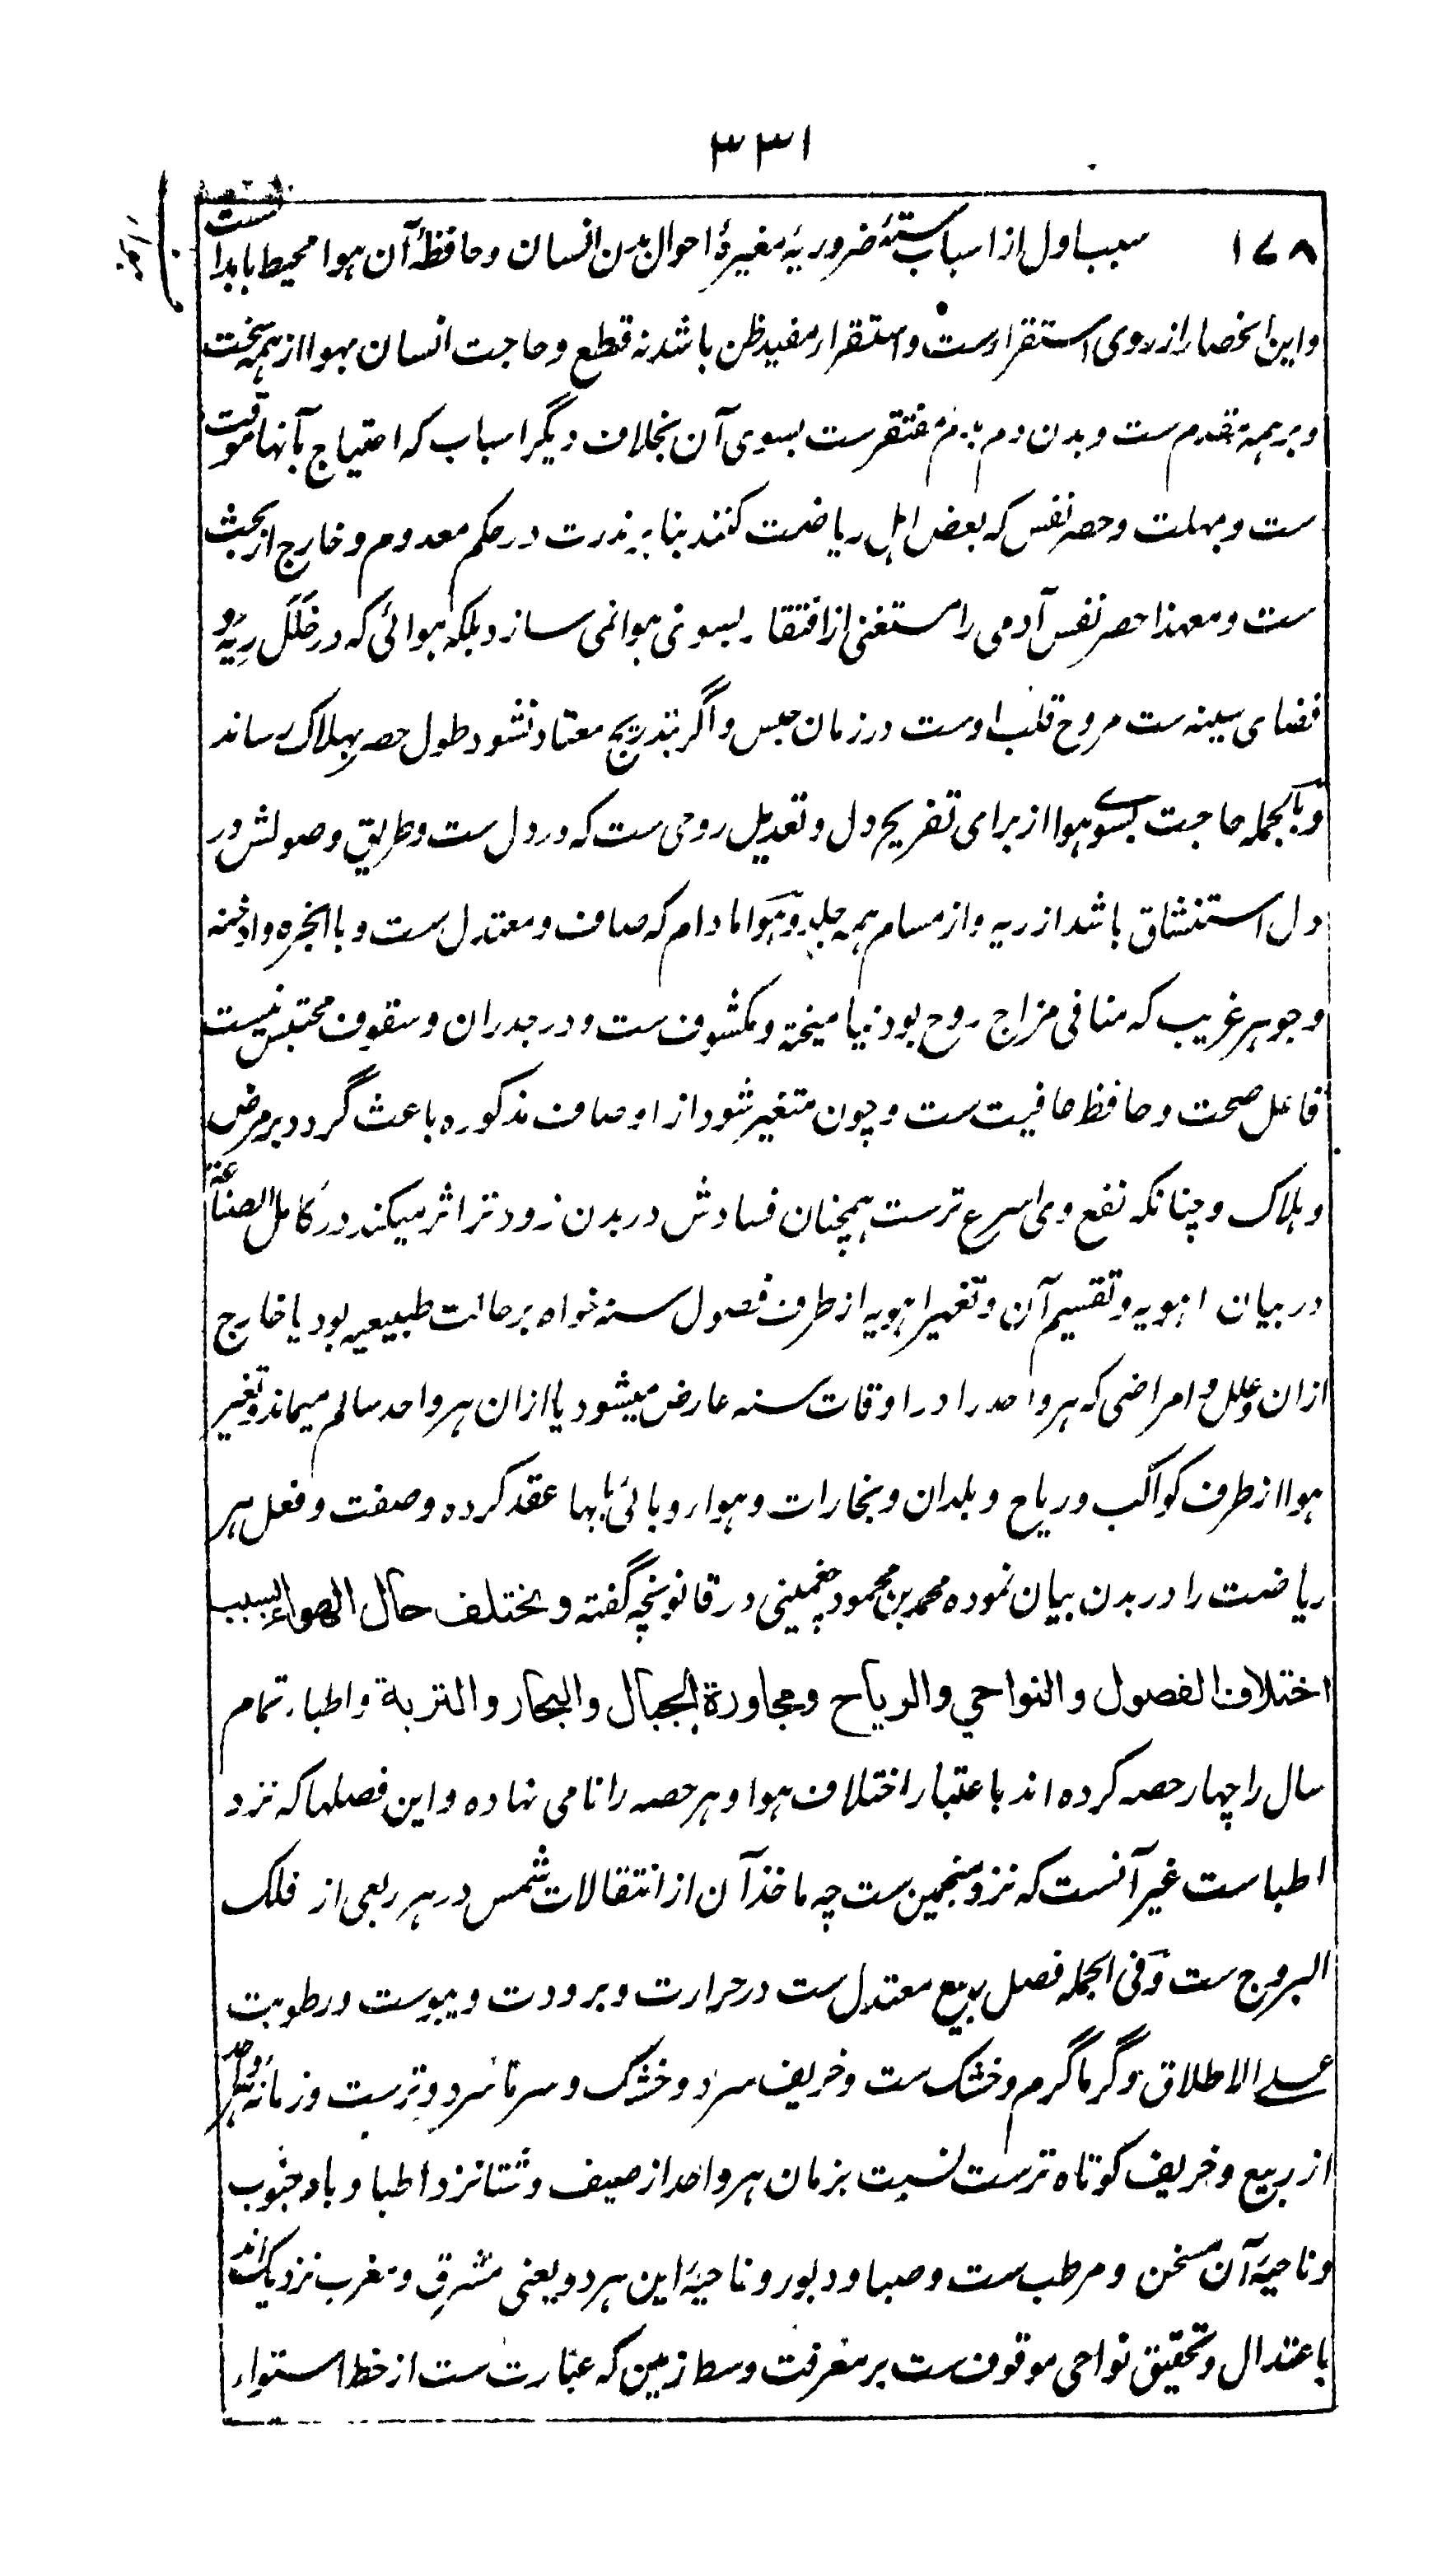 ۳۳۱
۱۷۸ سبب اول از اسباب ستهٔ ضروریهٔ مغیرهٔ احوال بدن انسان و حافظهٔ آن هوا محیط بابدانست
و این انحصار از روی استقراست و استقرار مفید ظن باشد نه قطع و حاجت انسان بهوا از همه سخت
و برهمه مقدم ست و بدن دم بدم مفتقرست بسوی آن بخلاف دیگر اسباب که احتیاج بآنها موقت
ست و مهلت و حصر نفس که بعض اهل ریاضت کنند بنا بر ندرت در حکم معدوم و خارج از بحث
ست و معهذا حصر نفس آدمی را مستغنی از افتقار بسوی هوا نمی سازد بلکه هوائی که در خلل ریه و
فضای سینه ست مروح قلب اوست در زمان حبس و اگر بتدریج معتاد نشود طول حصر بهلاک رساند
و بالجمله حاجت بسوی هوا از برای تفریح دل و تعدیل روحی ست که در دل ست و طریق وصولش در
دل استنشاق باشد از ریه و از مسام همه جلد و هوا مادام که صاف و معتدل ست و با ابخره و ادخنه
و جوهر غریب که منافی مزاج روح بود نیامیخته و مکشوف ست و در جدران و سقوف محتبس نیست
فاعل صحت و حافظ عافیت ست و چون متغیر شود از اوصاف مذکوره باعث گردد بر مرض
و هلاک و چنانکه نفع وی اسرع ترست همچنان فسادش در بدن زود تر اثر میکند در کامل الصناعة
در بیان اهویه و تقسیم آن و تغییر اهویه از طرف فصول سنه خواه بر حالت طبیعیه بود یا خارج
ازان و علل و امراضی که هر واحد را در اوقات سنه عارض میشود یا ازان هر واحد سالم میماند و تغیر
هوا از طرف کواکب و ریاح و بلدان و بخارات و هوار وبائی بابها عقد کرده و صفت و فعل هر
ریاضت را در بدن بیان نموده محمد بن محمود چغمینی در قانونچه گفته و یختلف حال الهواء بسبب
اختلاف الفصول و النواحی و الریاح و مجاورة الجبال و البحار و التربة و اطبار تمام
سال را چهار حصه کرده اند باعتبار اختلاف هوا و هر حصه را نامی نهاده و این فصلها که نزد
اطباست غیر آنست که نزد منجمین ست چه ماخذ آن از انتقالات شمس در هر ربعی از فلک
البروج ست و فی الجمله فصل ربیع معتدل ست در حرارت و برودت و یبوست و رطوبت
علی الاطلاق و گرما گرم و خشک ست و خریف سرد و خشک و سرما سرد و ترست و زمانهٔ هر واحد
از ربیع و خریف کوتاه ترست نسبت بزمان هر واحد از صیف و شتا نزد اطبا و باد جنوب
و ناحیهٔ آن مسخن و مرطب ست و صبا و دبور و ناحیهٔ این هر دو یعنی مشرق و مغرب نزدیک اند
باعتدال و تحقیق نواحی موقوف ست بر معرفت وسط زمین که عبارت ست از خط استواء